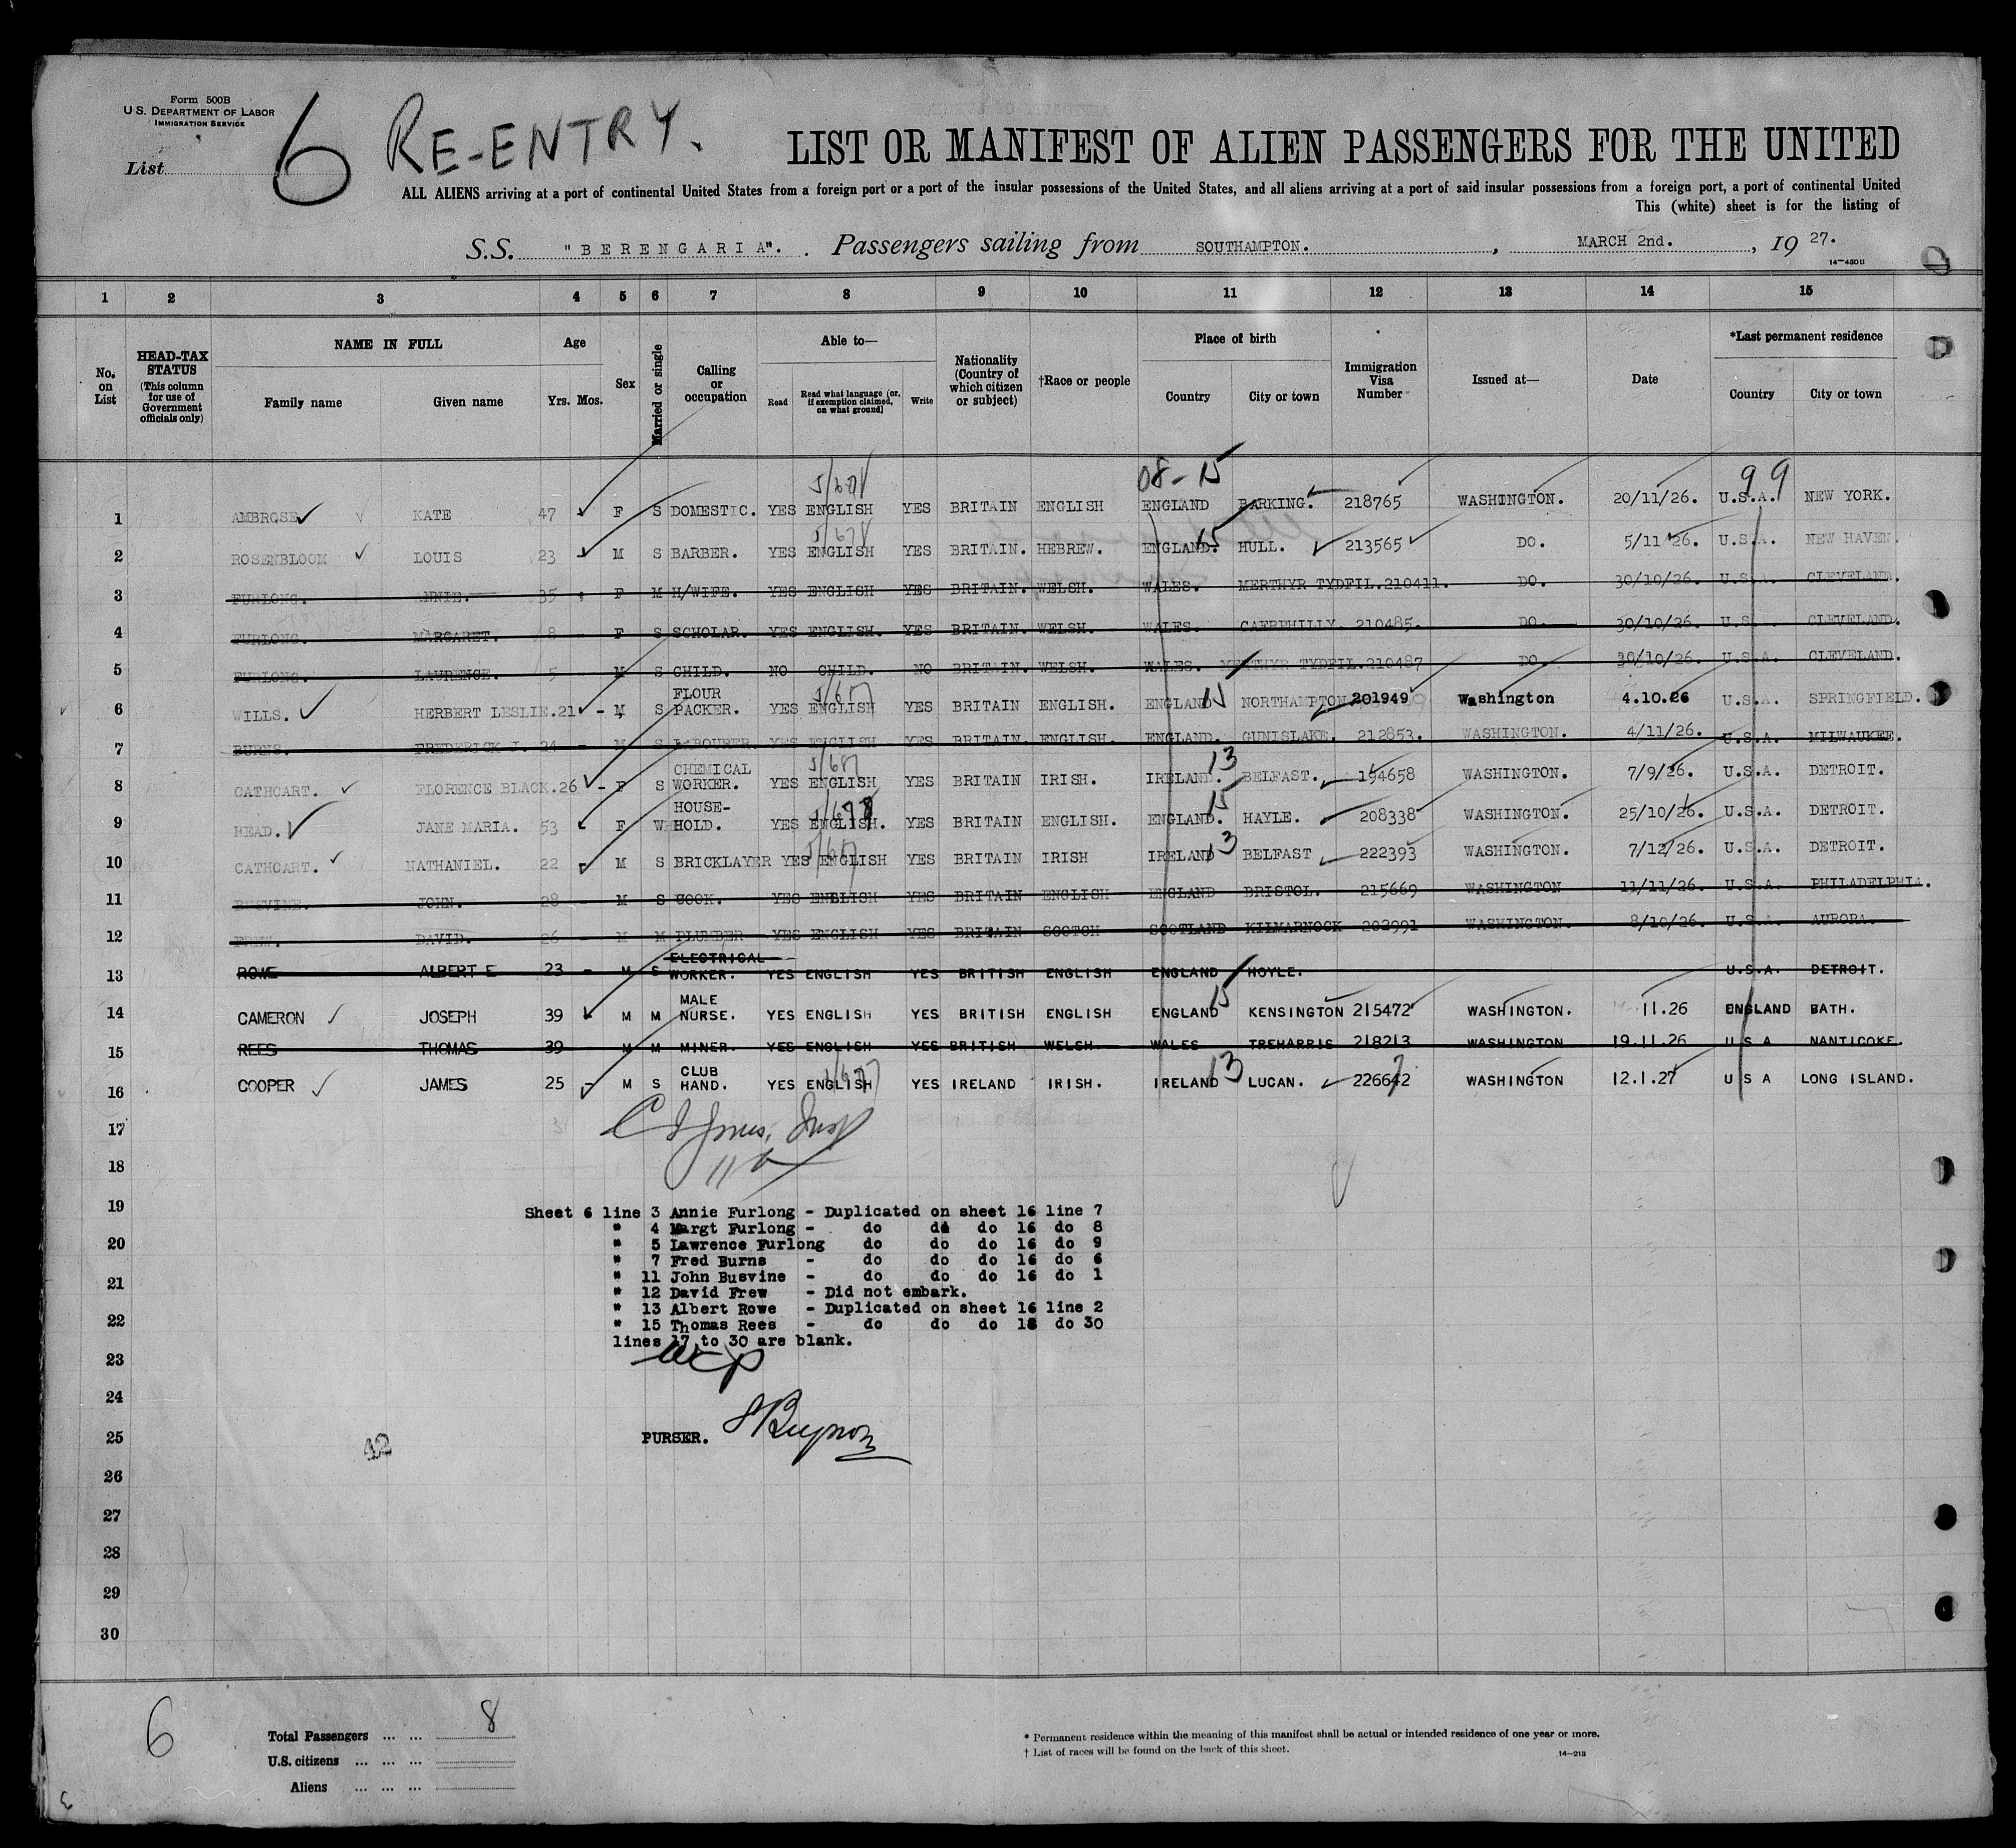 Form 500B
U.S. DEPARTMENT OF LABOR
IMMIGRATION SERVICE
List 6 RE-ENTRY.
LIST OR MANIFEST OF ALIEN PASSENGERS FOR THE UNITED
ALL ALIENS arriving at a port of continental United States from a foreign port or a port of the insular possessions of the United States, and all aliens arriving at a port of said insular possessions from a foreign port, a port of continental United
This (white) sheet is for the listing of
S.S. "BERENGARIA". Passengers sailing from SOUTHAMPTON. , MARCH 2nd. , 19 27.
14—480B
1 2 3 4 5 6 7 8 9 10 11 12 13 14 15
No. on List
HEAD-TAX STATUS (This column for use of Government officials only)
NAME IN FULL
Family name Given name
Age
Yrs. Mos.
Sex
Married or single
Calling or occupation
Able to—
Read Read what language (or, if exemption claimed, on what ground) Write
Nationality (Country of which citizen or subject)
†Race or people
Place of birth
Country City or town
Immigration Visa Number
Issued at—
Date
*Last permanent residence
Country City or town
08-15 99
1 AMBROSE KATE 47 F S DOMESTIC. YES ENGLISH YES BRITAIN ENGLISH ENGLAND BARKING. 218765 WASHINGTON. 20/11/26. U.S.A. NEW YORK.
2 ROSENBLOOM LOUIS 23 M S BARBER. YES ENGLISH YES BRITAIN. HEBREW. ENGLAND. 15 HULL. 213565 DO. 5/11/26. U.S.A. NEW HAVEN.
3 FURLONG. ANNIE. 35 F M H/WIFE. YES ENGLISH YES BRITAIN. WELSH. WALES. MERTHYR TYDFIL. 210411. DO. 30/10/26. U.S.A. CLEVELAND.
4 FURLONG. MARGARET. 8 - F S SCHOLAR. YES ENGLISH. YES BRITAIN. WELSH. WALES. CAERPHILLY 210485. DO. 30/10/26. U.S. CLEVELAND.
5 FURLONG. LAURENCE. 5 - M S CHILD. NO CHILD. NO BRITAIN. WELSH. WALES. MERTHYR TYDFIL. 210487 DO 30/10/26. U.S.A. CLEVELAND.
6 WILLS. HERBERT LESLIE. 21 - M S FLOUR PACKER. YES ENGLISH YES BRITAIN ENGLISH. ENGLAND 15 NORTHAMPTON 201949 Washington 4.10.26 U.S.A. SPRINGFIELD.
7 BURNS. FREDERICK J. 24 - M S LABOURER. YES ENGLISH YES BRITAIN. ENGLISH. ENGLAND. GUNISLAKE. 212853. WASHINGTON. 4/11/26. U.S.A. MILWAUKEE.
8 CATHCART. FLORENCE BLACK. 26 - F S CHEMICAL WORKER. YES ENGLISH YES BRITAIN IRISH. IRELAND. 13 BELFAST. 194658 WASHINGTON. 7/9/26. U.S.A. DETROIT.
9 HEAD. JANE MARIA. 53 F W HOUSE-HOLD. YES ENGLISH. YES BRITAIN ENGLISH. ENGLAND. 15 HAYLE. 208338 WASHINGTON. 25/10/26. U.S.A. DETROIT.
10 CATHCART. NATHANIEL. 22 - M S BRICKLAYER YES ENGLISH YES BRITAIN IRISH IRELAND 13 BELFAST 222393 WASHINGTON. 7/12/26. U.S.A. DETROIT.
11 BUSVINE. JOHN. 28 - M S COOK. YES ENGLISH YES BRITAIN ENGLISH ENGLAND BRISTOL. 215669 WASHINGTON 11/11/26. U.S.A. PHILADELPHIA.
12 FREW. DAVID. 26 - M M PLUMBER YES ENGLISH YES BRITAIN SCOTCH SCOTLAND KILMARNOCK 202991 WASHINGTON. 8/10/26. U.S.A. AURORA.
13 ROWE ALBERT E 23 - M S ELECTRICAL WORKER. YES ENGLISH YES BRITISH ENGLISH ENGLAND HOYLE. U.S.A. DETROIT.
14 CAMERON JOSEPH 39 M M MALE NURSE. YES ENGLISH YES BRITISH ENGLISH ENGLAND 15 KENSINGTON 215472 WASHINGTON. 11.26 ENGLAND BATH.
15 REES THOMAS 39 - M M MINER. YES ENGLISH YES BRITISH WELSH. WALES TREHARRIS 218213 WASHINGTON 19.11.26 U S A NANTICOKE.
16 COOPER JAMES 25 - M S CLUB HAND. YES ENGLISH YES IRELAND IRISH. IRELAND 13 LUCAN. 226642 WASHINGTON 12.1.27 U S A LONG ISLAND.
17
18
19
20
21
22
23
24
25
26
27
28
29
30
Sheet 6 line 3 Annie Furlong - Duplicated on sheet 16 line 7
" 4 Margt Furlong - do do do 16 do 8
" 5 Lawrence Furlong do do do 16 do 9
" 7 Fred Burns - do do do 16 do 6
" 11 John Busvine - do do do 16 do 1
" 12 David Frew - Did not embark.
" 13 Albert Rowe - Duplicated on sheet 16 line 2
" 15 Thomas Rees - do do do 18 do 30
lines 17 to 30 are blank.
PURSER.
42
6
Total Passengers ... ... 8
U.S. citizens ... ... ...
Aliens ... ... ...
* Permanent residence within the meaning of this manifest shall be actual or intended residence of one year or more.
† List of races will be found on the back of this sheet.
14—213